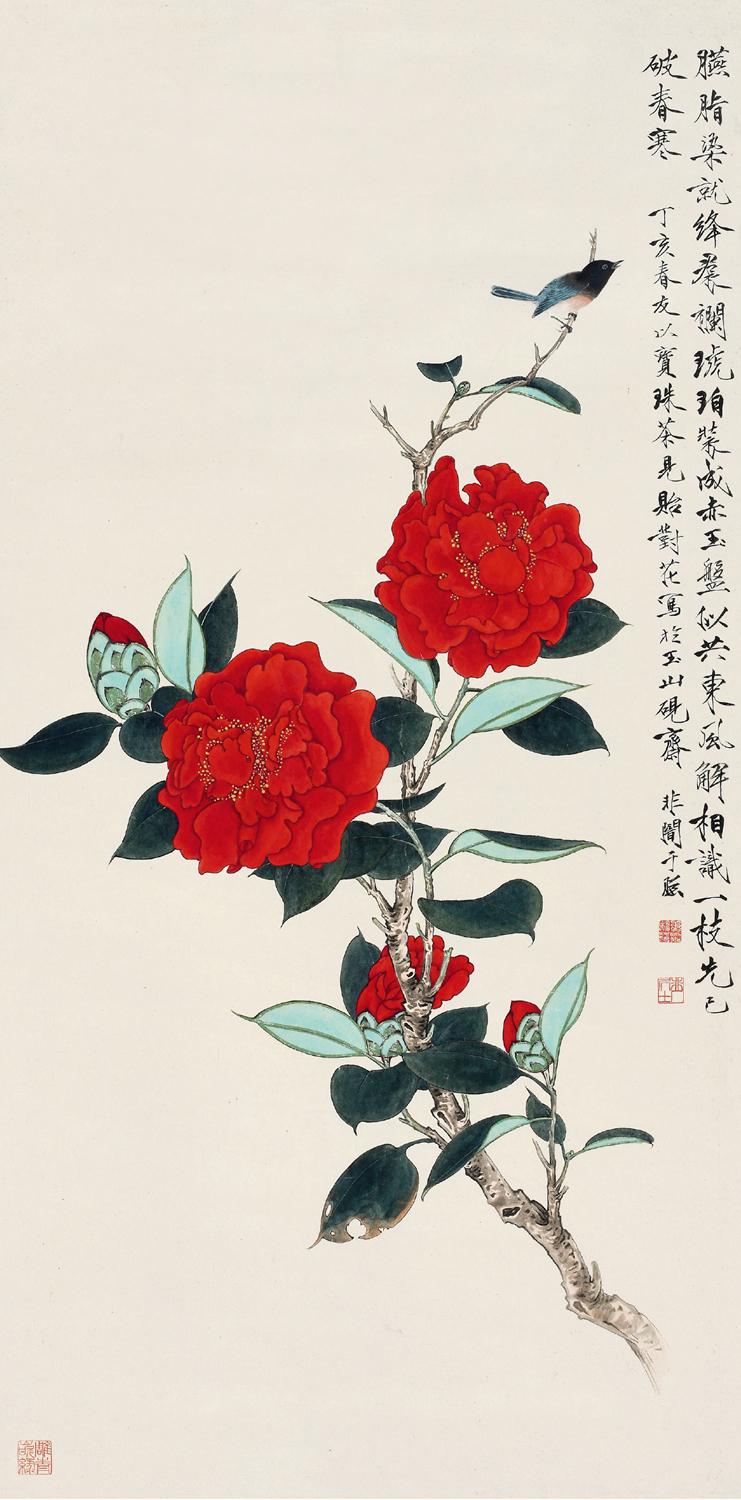 臙脂染就絳裠襴琥珀裝成赤玉盤似共東風解相識一枝先已
破春寒 丁亥春友以寶珠茶見貽對花寫於玉山硯齋 非闇于照
雕青嵌綠